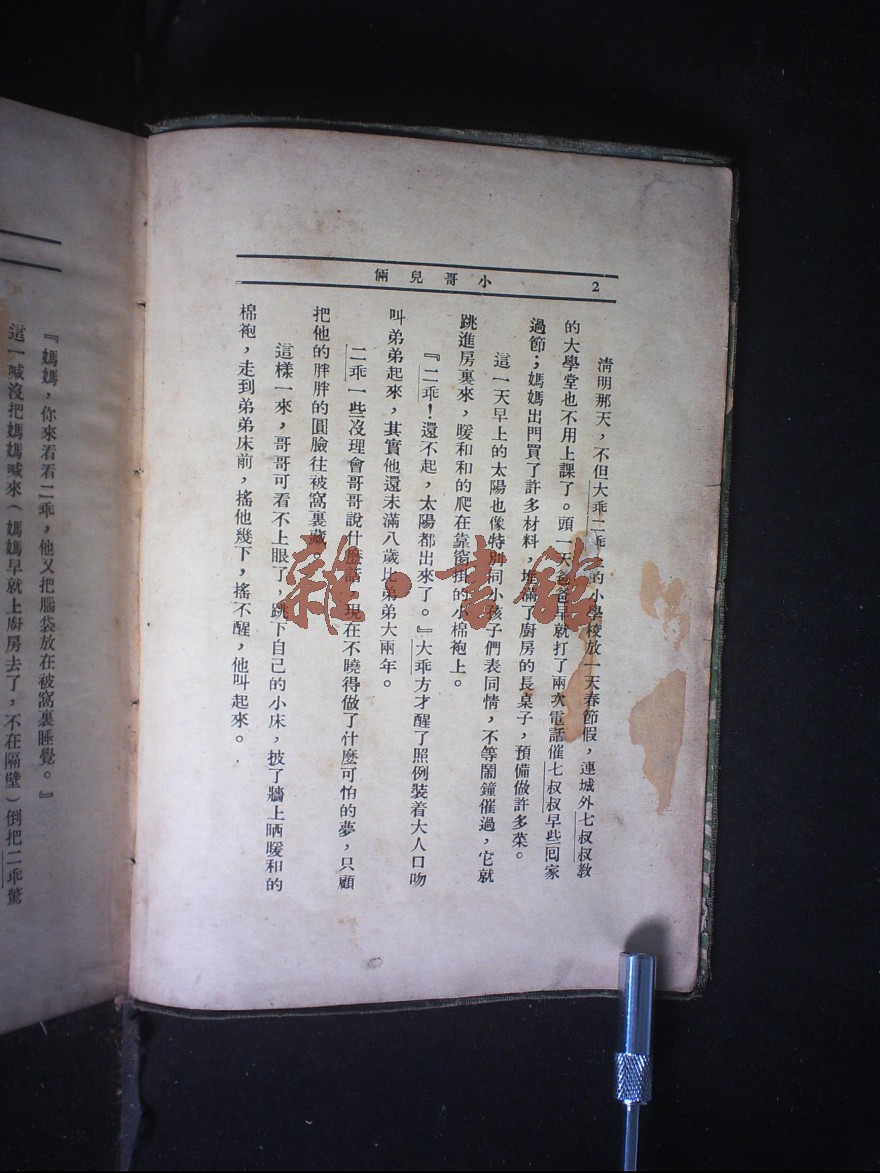 小哥兒倆 2
清明那天，不但大乖二乖的小學校放一天春節假，連城外七叔叔教
的大學堂也不用上課了。頭一天爸爸早就打了兩次電話催七叔叔早些囘家
過節；媽媽出門買了許多材料，堆滿了廚房的長桌子，預備做許多菜。
這一天早上的太陽也像特別同小孩子們表同情，不等鬧鐘催過，它就
跳進房裏來，暖和和的爬在靠窗掛的小棉袍上。
『二乖！還不起，太陽都出來了。』大乖方才醒了照例裝着大人口吻
叫弟弟起來，其實他還未滿八歲比弟弟大兩年。
二乖一些沒理會哥哥說什麼話，現在不曉得做了什麼可怕的夢，只顧
把他的胖胖的圓臉往被窩裏藏。
這樣一來，哥哥可看不上眼了，跳下自己的小床，披了牆上晒暖和的
棉袍，走到弟弟床前，搖他幾下，搖不醒，他叫起來。
『媽媽，你來看看二乖，他又把腦袋放在被窩裏睡覺。』
這一喊沒把媽媽喊來（媽媽早就上廚房去了，不在隔壁）倒把二乖驚
雜·書館